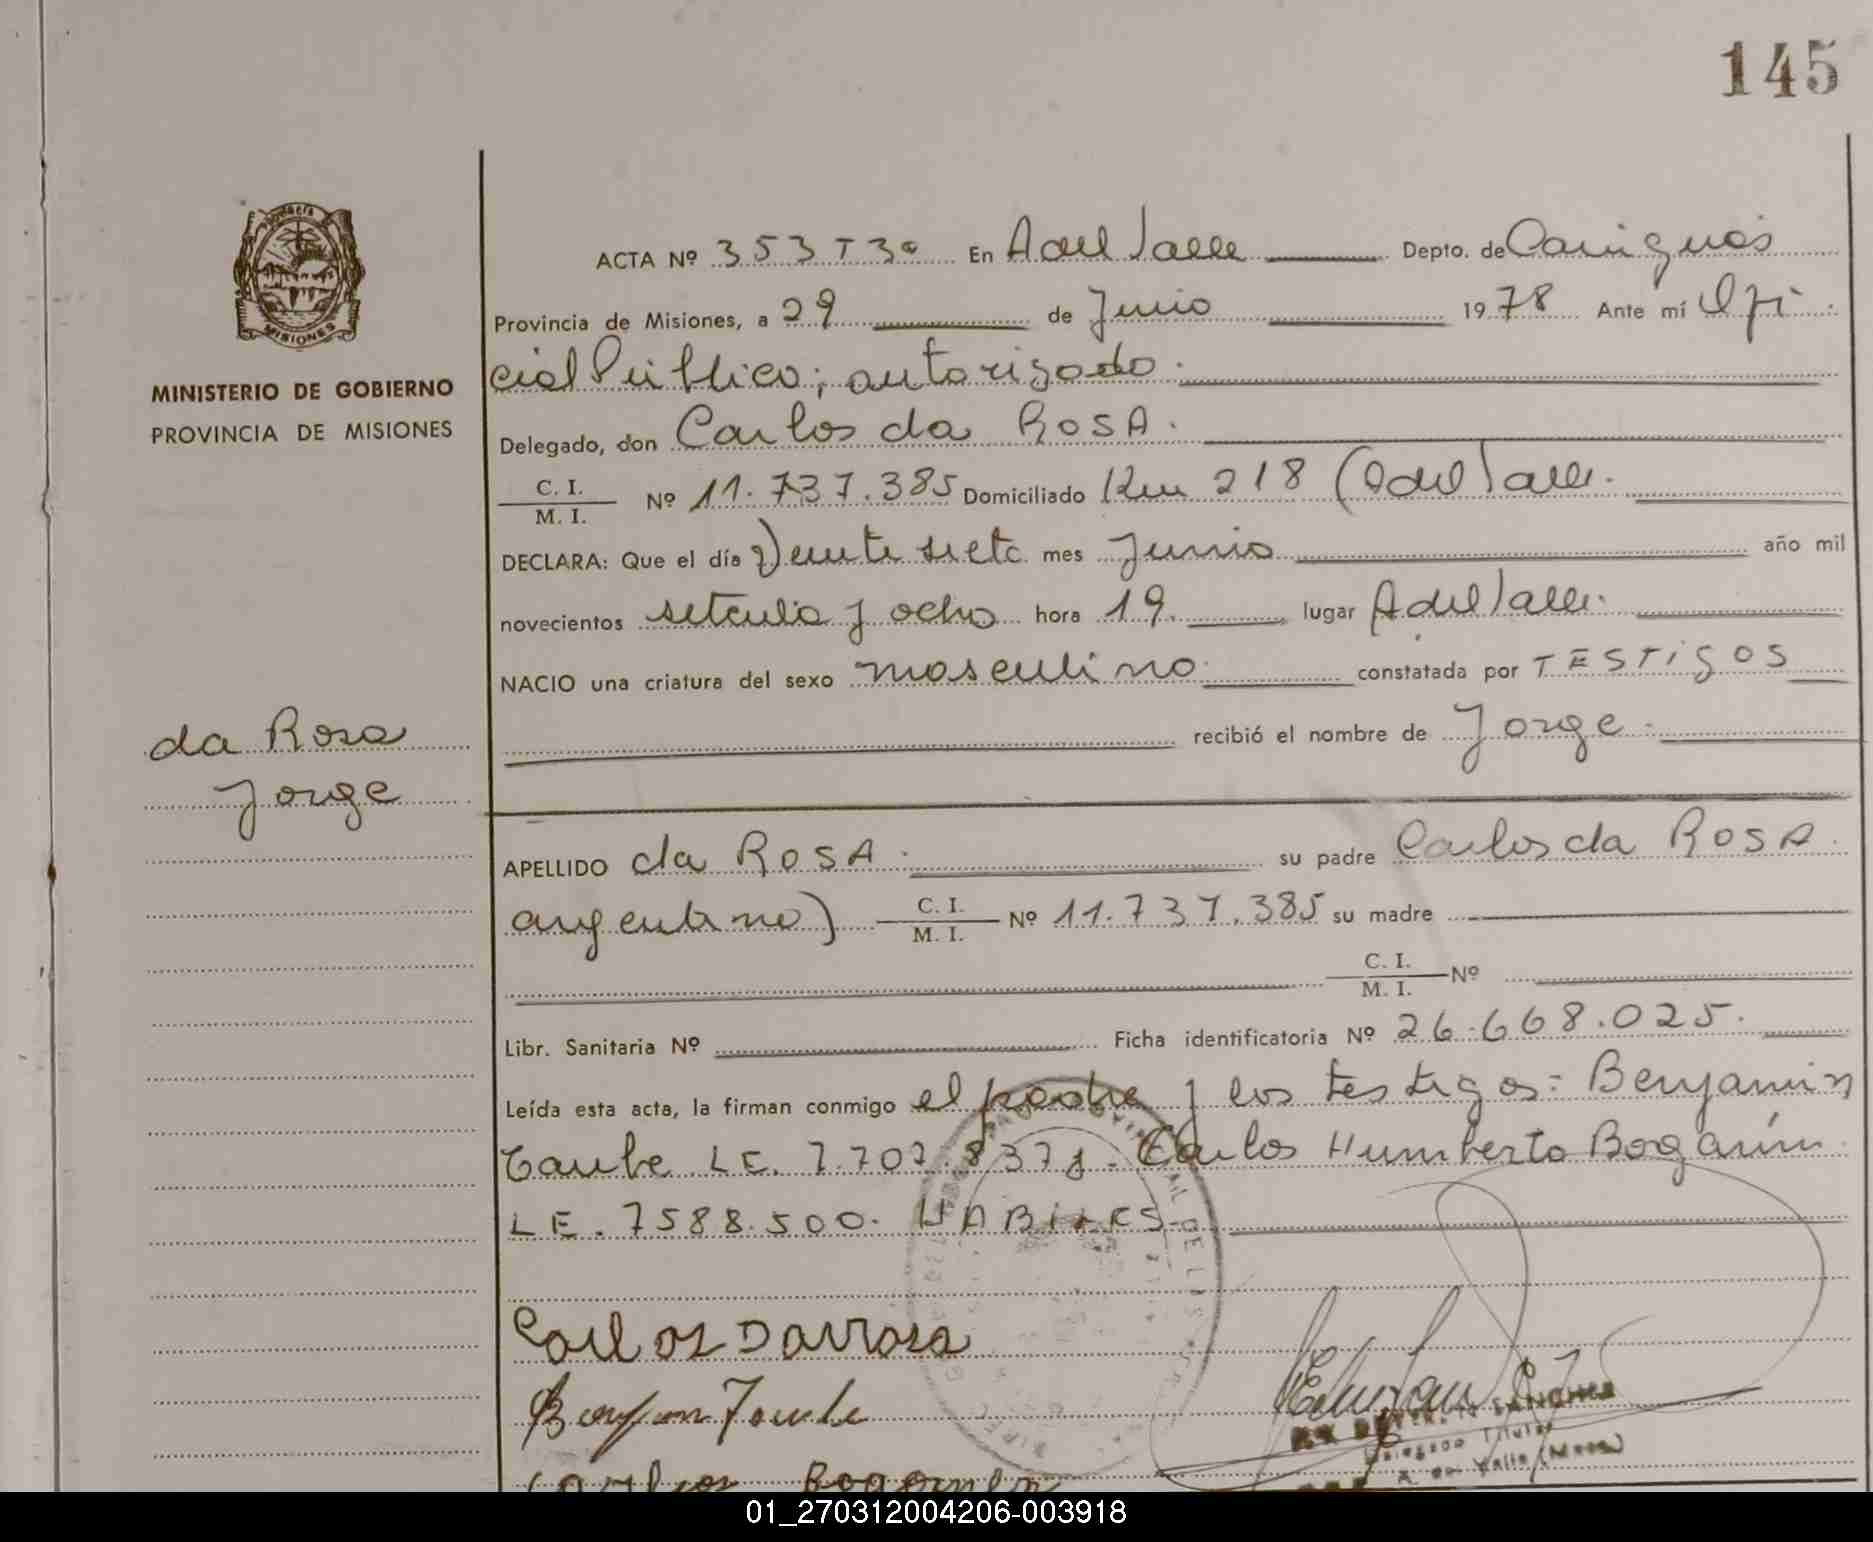 145
ACTA Nº 353 T 3º En A del Valle Depto. de Cainguás
Provincia de Misiones, a 29 de Junio 1978 Ante mí Ofi
cial Público; autorizado.
Delegado, don Carlos da ROSA.
C. I.
M. I.
Nº 11.737.385 Domiciliado Km 218 (A del Valle.
DECLARA: Que el día Veinte siete mes Junio año mil
novecientos setenta y ocho hora 19. lugar A del Valle.
NACIO una criatura del sexo masculino constatada por TESTIGOS
recibió el nombre de Jorge.
APELLIDO da ROSA. su padre Carlos da ROSA.
argentino) C. I. M. I. Nº 11.737.385 su madre
C. I. M. I. Nº
Libr. Sanitaria Nº Ficha identificatoria Nº 26.668.025.
Leída esta acta, la firman conmigo el padre y los testigos: Benjamin
Taube LE. 7.707.837 y. Carlos Humberto Bogarín.
LE. 7588.500. HABILES.
Carlos Darrosa
Benjamin Taube
Carlos
SANCHEZ
Delegado Titular
A. del Valle (Mnes)
MISIONES
MINISTERIO DE GOBIERNO
PROVINCIA DE MISIONES
da Rosa
Jorge
01_270312004206-003918